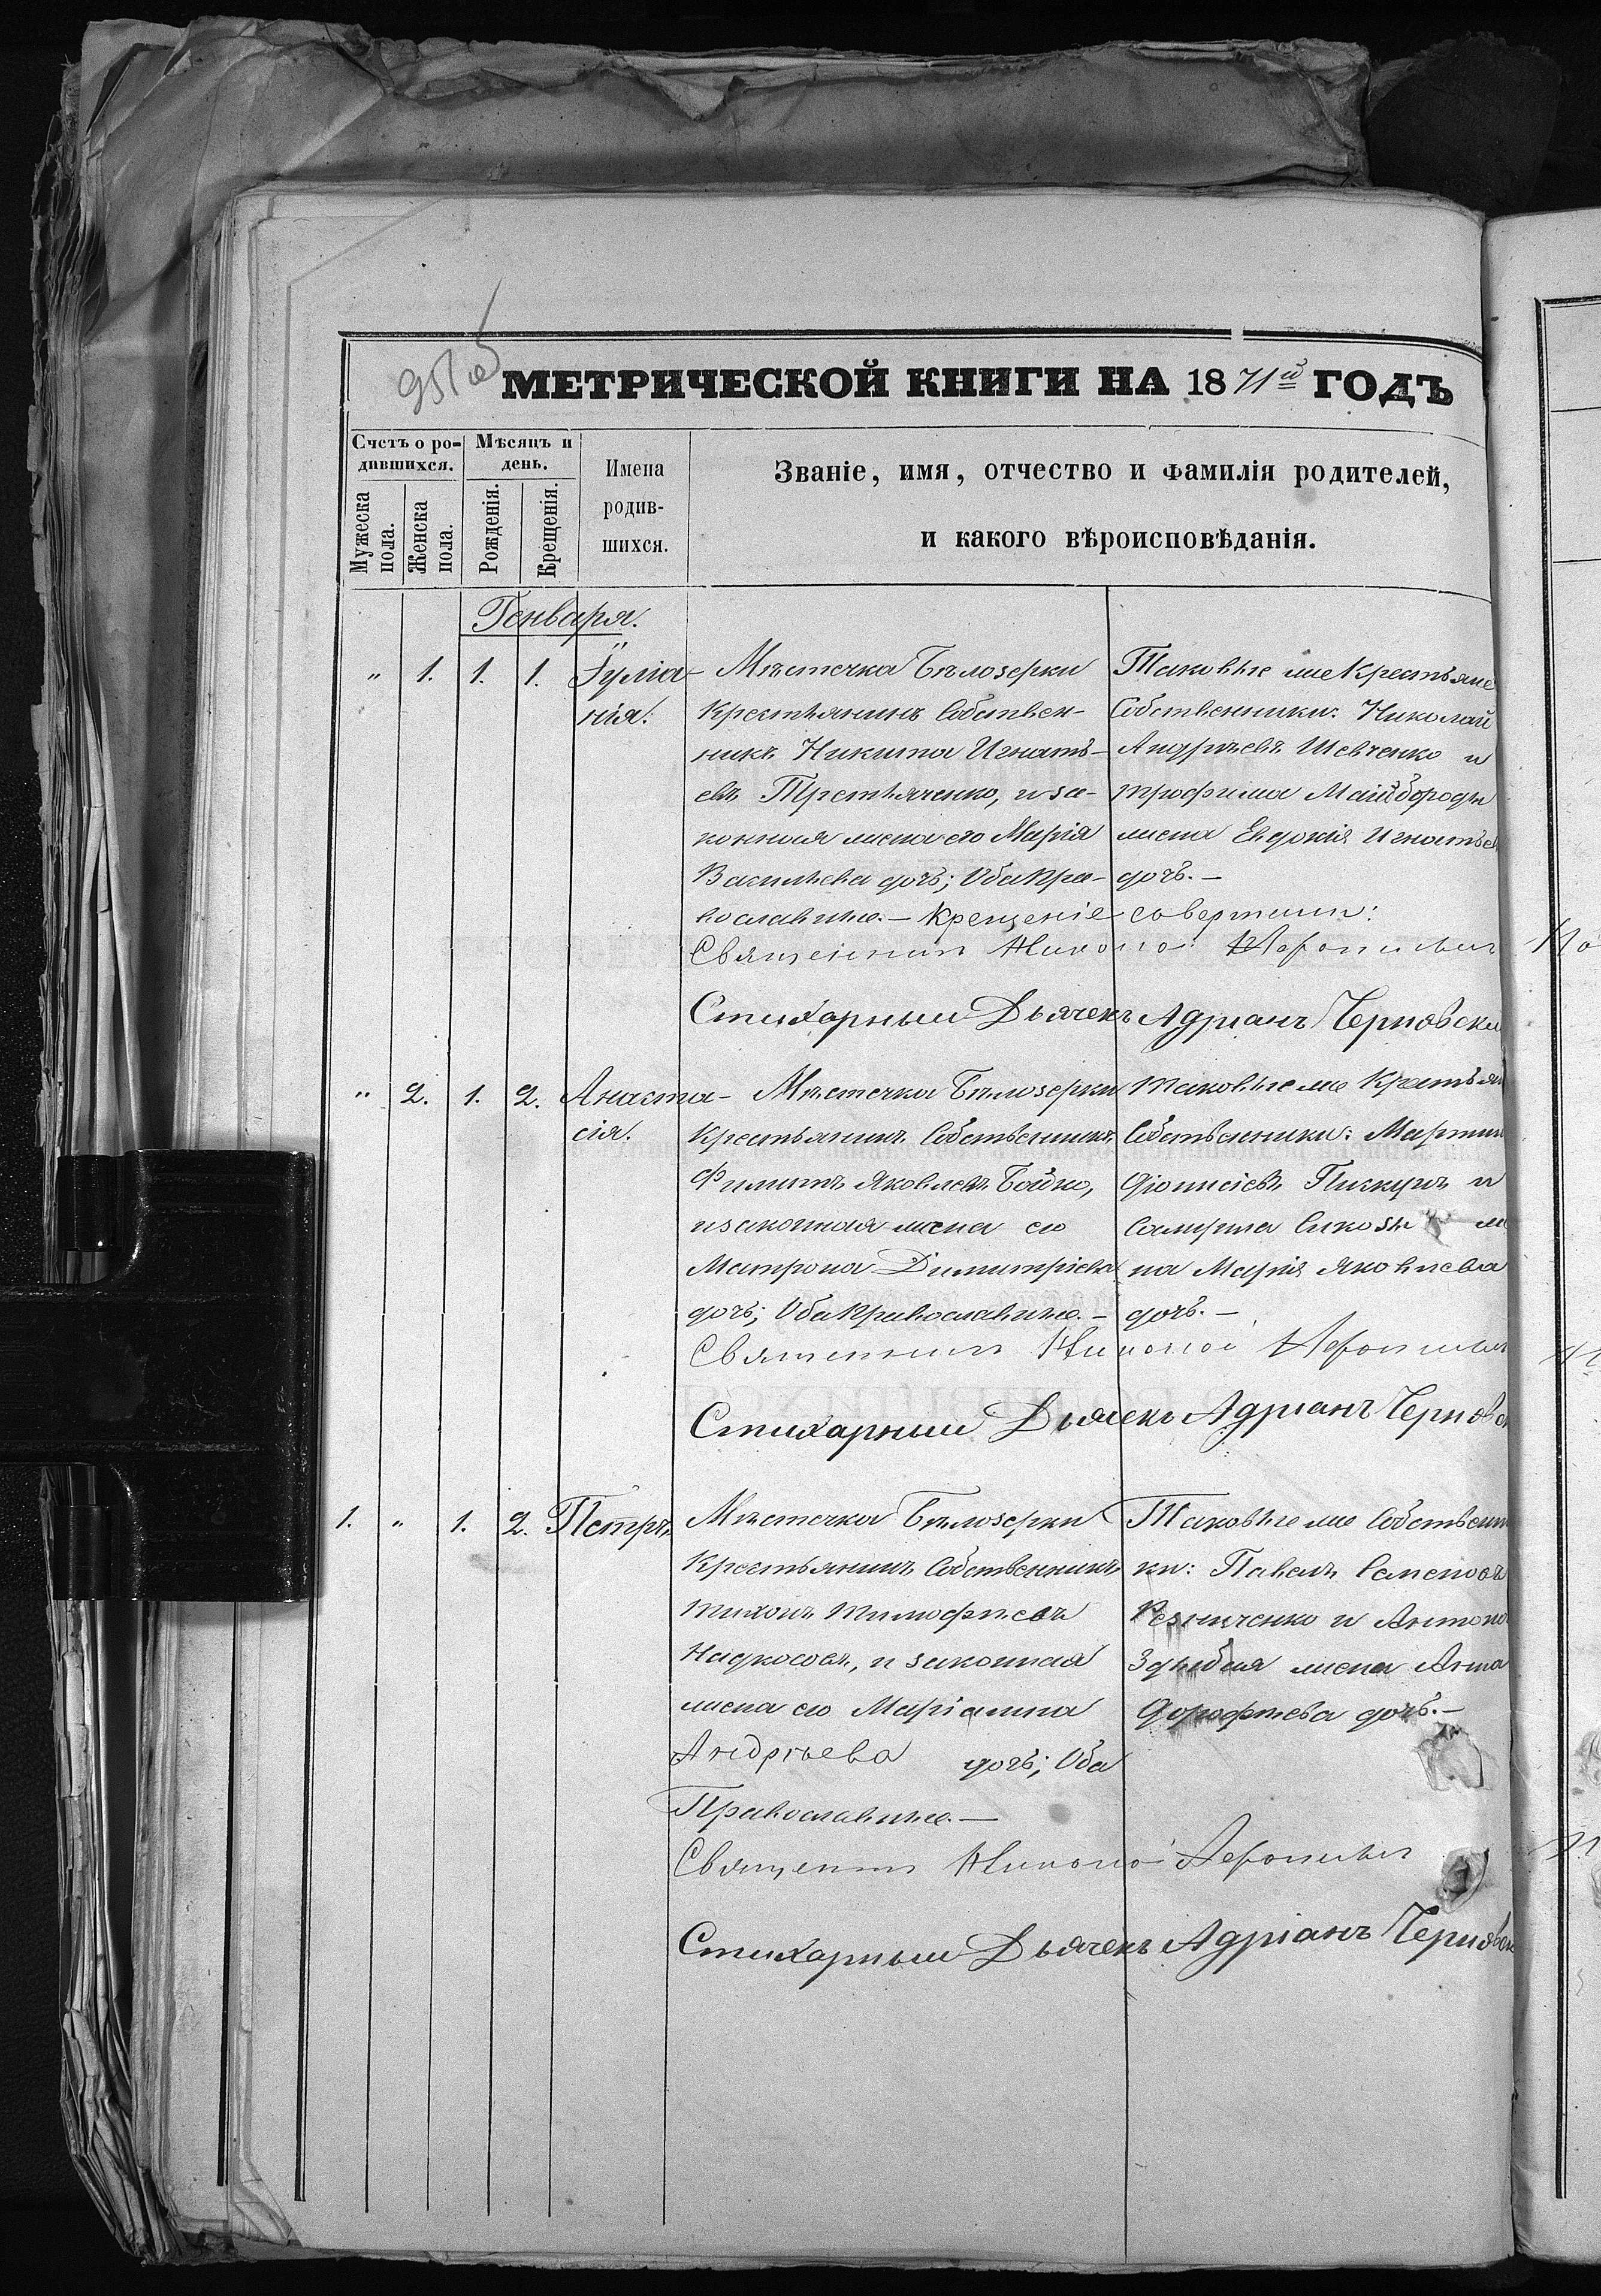 МЕТРИЧЕСКОЙ КНИГИ НА 1871й ГОДЪ
Счетъ о ро-
дившихся.
Мѣсяцъ и
день.
Имена
родив-
шихся.
Званіе, имя, отчество и фамилія родителей,
и какого вѣроисповѣданія.
Мужеска
пола.
Женска
пола.
Рожденія.
Крещенія.
Генваря.
" 1. 1. 1. Іуліа-
нія.
Мѣстечка Бѣлозерки
Крестьянинъ Собствен-
никъ Никита Игнать-
евъ Третьяченко, и за-
конная жена его Марія
Васильева дочь; Оба Пра-
вославные. –
Таковые же Крестьяне
Собственники: Николай
Андреевъ Шевченко и
Трофима Майбороды
жена Евдокія Игнатьев
дочь. –
Крещеніе совершили:
Священникъ Николай
Стихарный Дьячекъ Адріанъ Черновски
" 2. 1. 2. Анаста-
сія.
Мѣстечка Бѣлозерки
Крестьянинъ Собственникъ
Филипъ Яковлевъ Бойко,
и законная жена его
Матрона Димитріева
дочь; Оба Православные. –
Таковые же Крестьян
Собственники: Мартин
Діонисіевъ Пижуръ и
на Марія Яковлева
дочь. –
Священникъ Николай
Стихарный Дьячекъ Адріанъ Чернов
1. " 1. 2. Петръ.
Мѣстечка Бѣлозерки
Крестьянинъ Собственникъ
Тихонъ Тимофѣевъ
Надкосовъ, и законная
жена его Маріанна
Андрѣева дочь; Оба
Православные. –
Таковые же Собственни
ки: Павелъ Семеновъ
Резниченко и Антона
жена Анна
Дорофѣева дочь. –
Священникъ Николай
Стихарный Дьячекъ Адріанъ Черновск